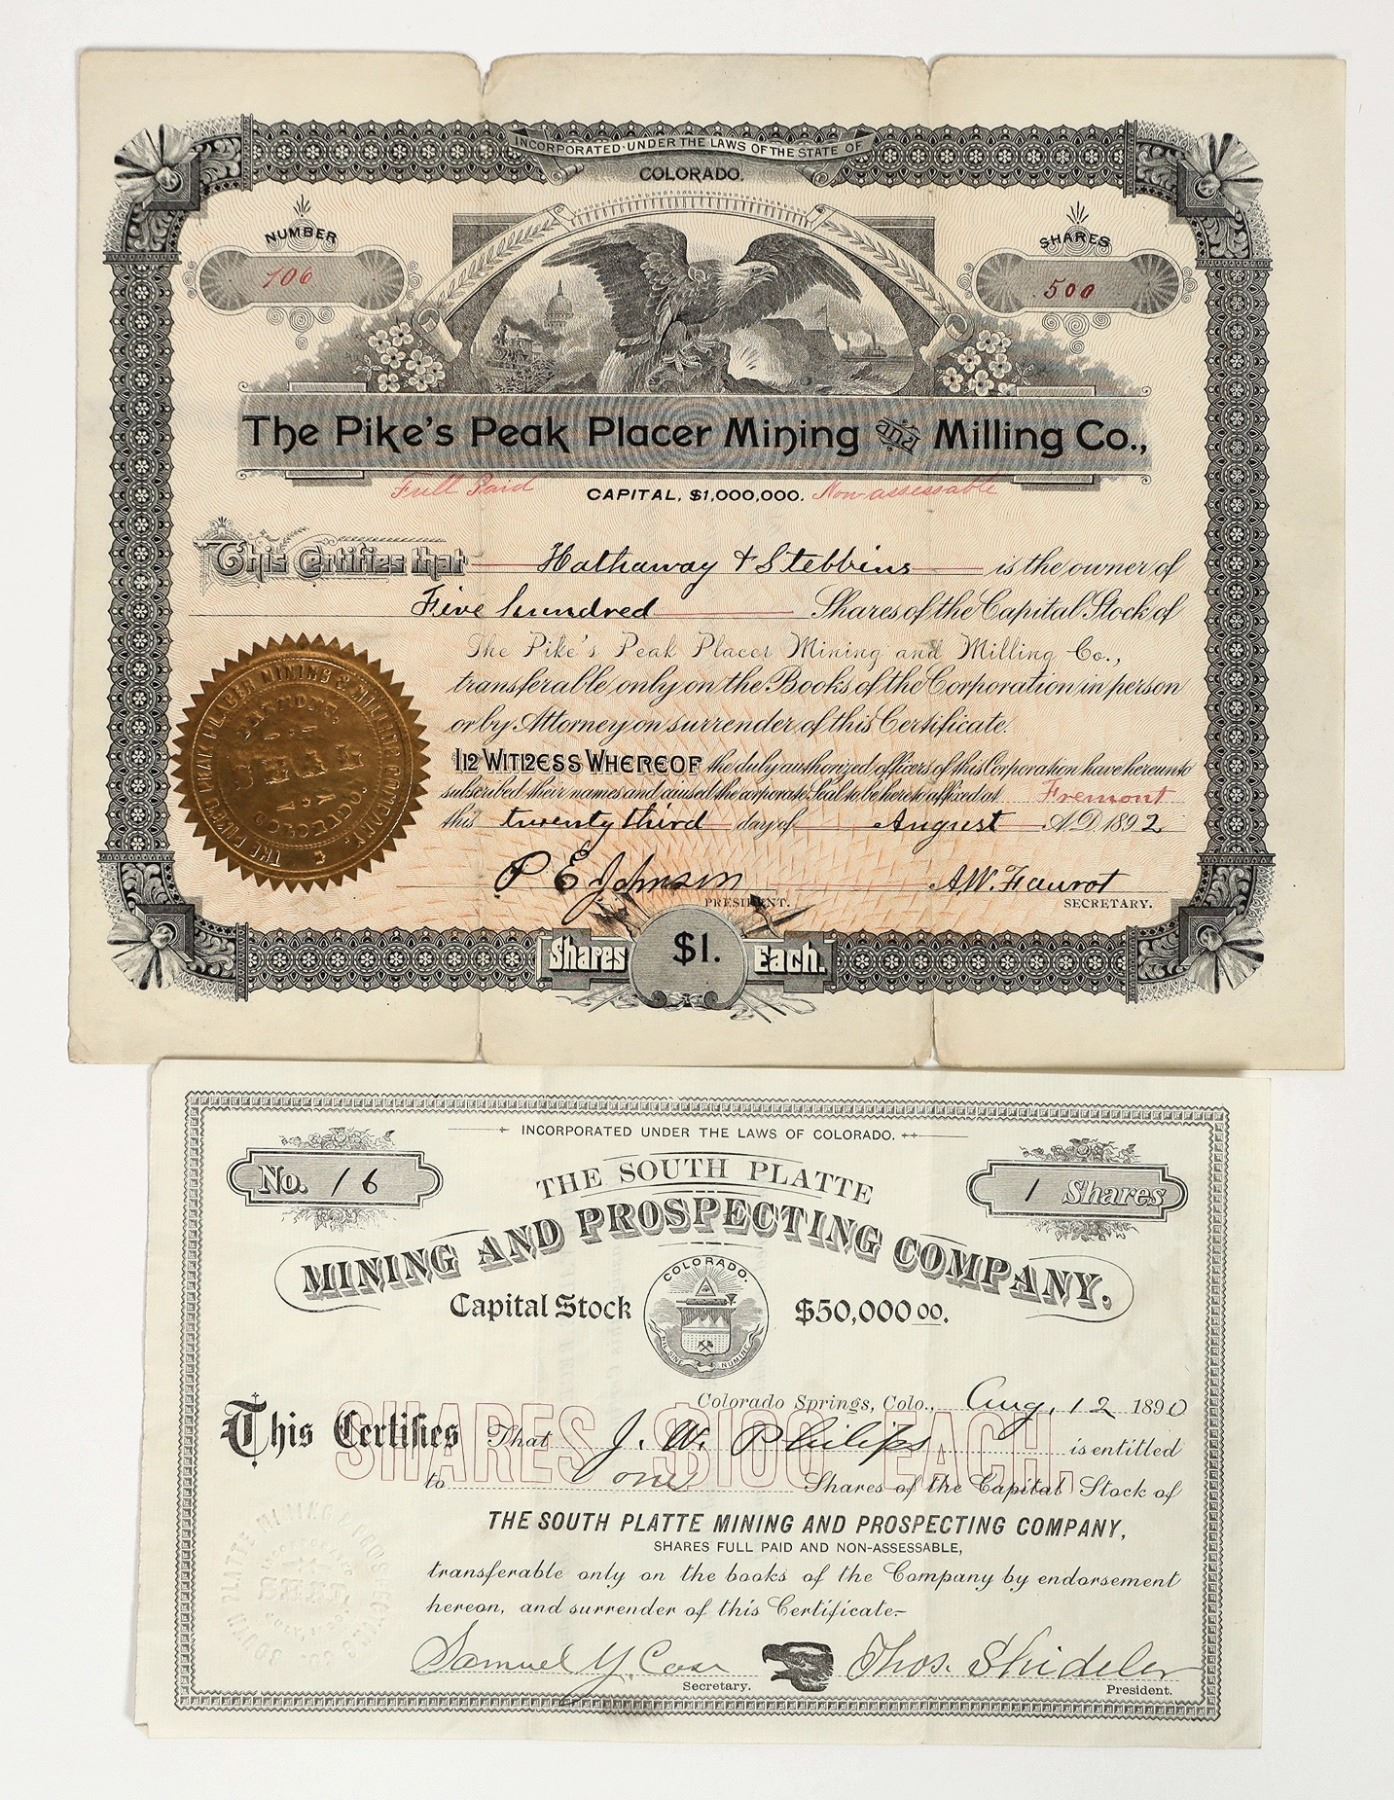 INCORPORATED · UNDER THE LAWS OF THE STATE OF
COLORADO.
NUMBER
106
SHARES
500
The Pike's Peak Placer Mining and Milling Co.,
Full Paid CAPITAL, $1,000,000. Non-assessable
This Certifies that Hathaway & Stebbins is the owner of
Five hundred Shares of the Capital Stock of
The Pike's Peak Placer Mining and Milling Co.,
transferable only on the Books of the Corporation in person
or by Attorney on surrender of this Certificate.
In Witness Whereof the duly authorized officers of this Corporation have hereunto
subscribed their names and caused the corporate Seal to be hereto affixed at Fremont
this twenty third day of August A.D. 1892
P E Johnson A.W. Faurot
PRESIDENT. SECRETARY.
THE PIKES PEAK PLACER MINING & MILLING COMPANY.
SEAL
COLORADO.
Shares $1. Each.
INCORPORATED UNDER THE LAWS OF COLORADO.
No. 16
1 Shares
THE SOUTH PLATTE
MINING AND PROSPECTING COMPANY.
Capital Stock $50,000 00.
COLORADO.
NIL SINE NUMINE
Colorado Springs, Colo., Aug. 12 1890
SHARES $100 EACH.
This Certifies That J. W. Philips is entitled
to one Shares of the Capital Stock of
THE SOUTH PLATTE MINING AND PROSPECTING COMPANY,
SHARES FULL PAID AND NON-ASSESSABLE,
transferable only on the books of the Company by endorsement
hereon, and surrender of this Certificate.-
SOUTH PLATTE MINING & PROSPECTING CO.
SEAL
Samuel Y. Case Thos. Shideler
Secretary. President.